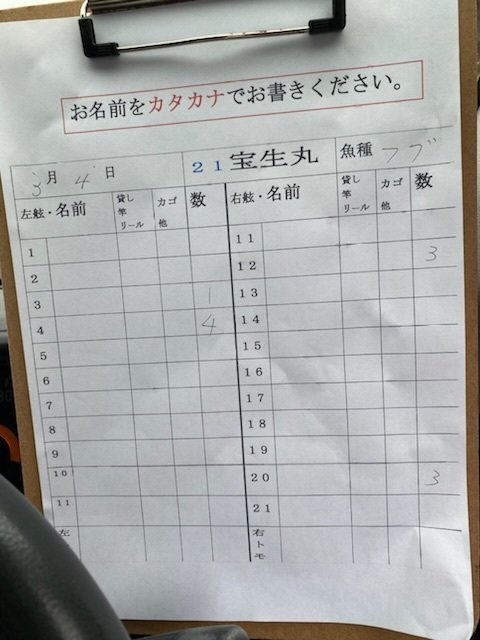 お名前をカタカナでお書きください。
3月 4日 21宝生丸 魚種 フグ
左舷・名前 貸し竿リール カゴ他 数 右舷・名前 貸し竿リール カゴ他 数
1 11
2 12 3
3 1 13
4 4 14
5 15
6 16
7 17
8 18
9 19
10 20 3
11 21
左 右トモ